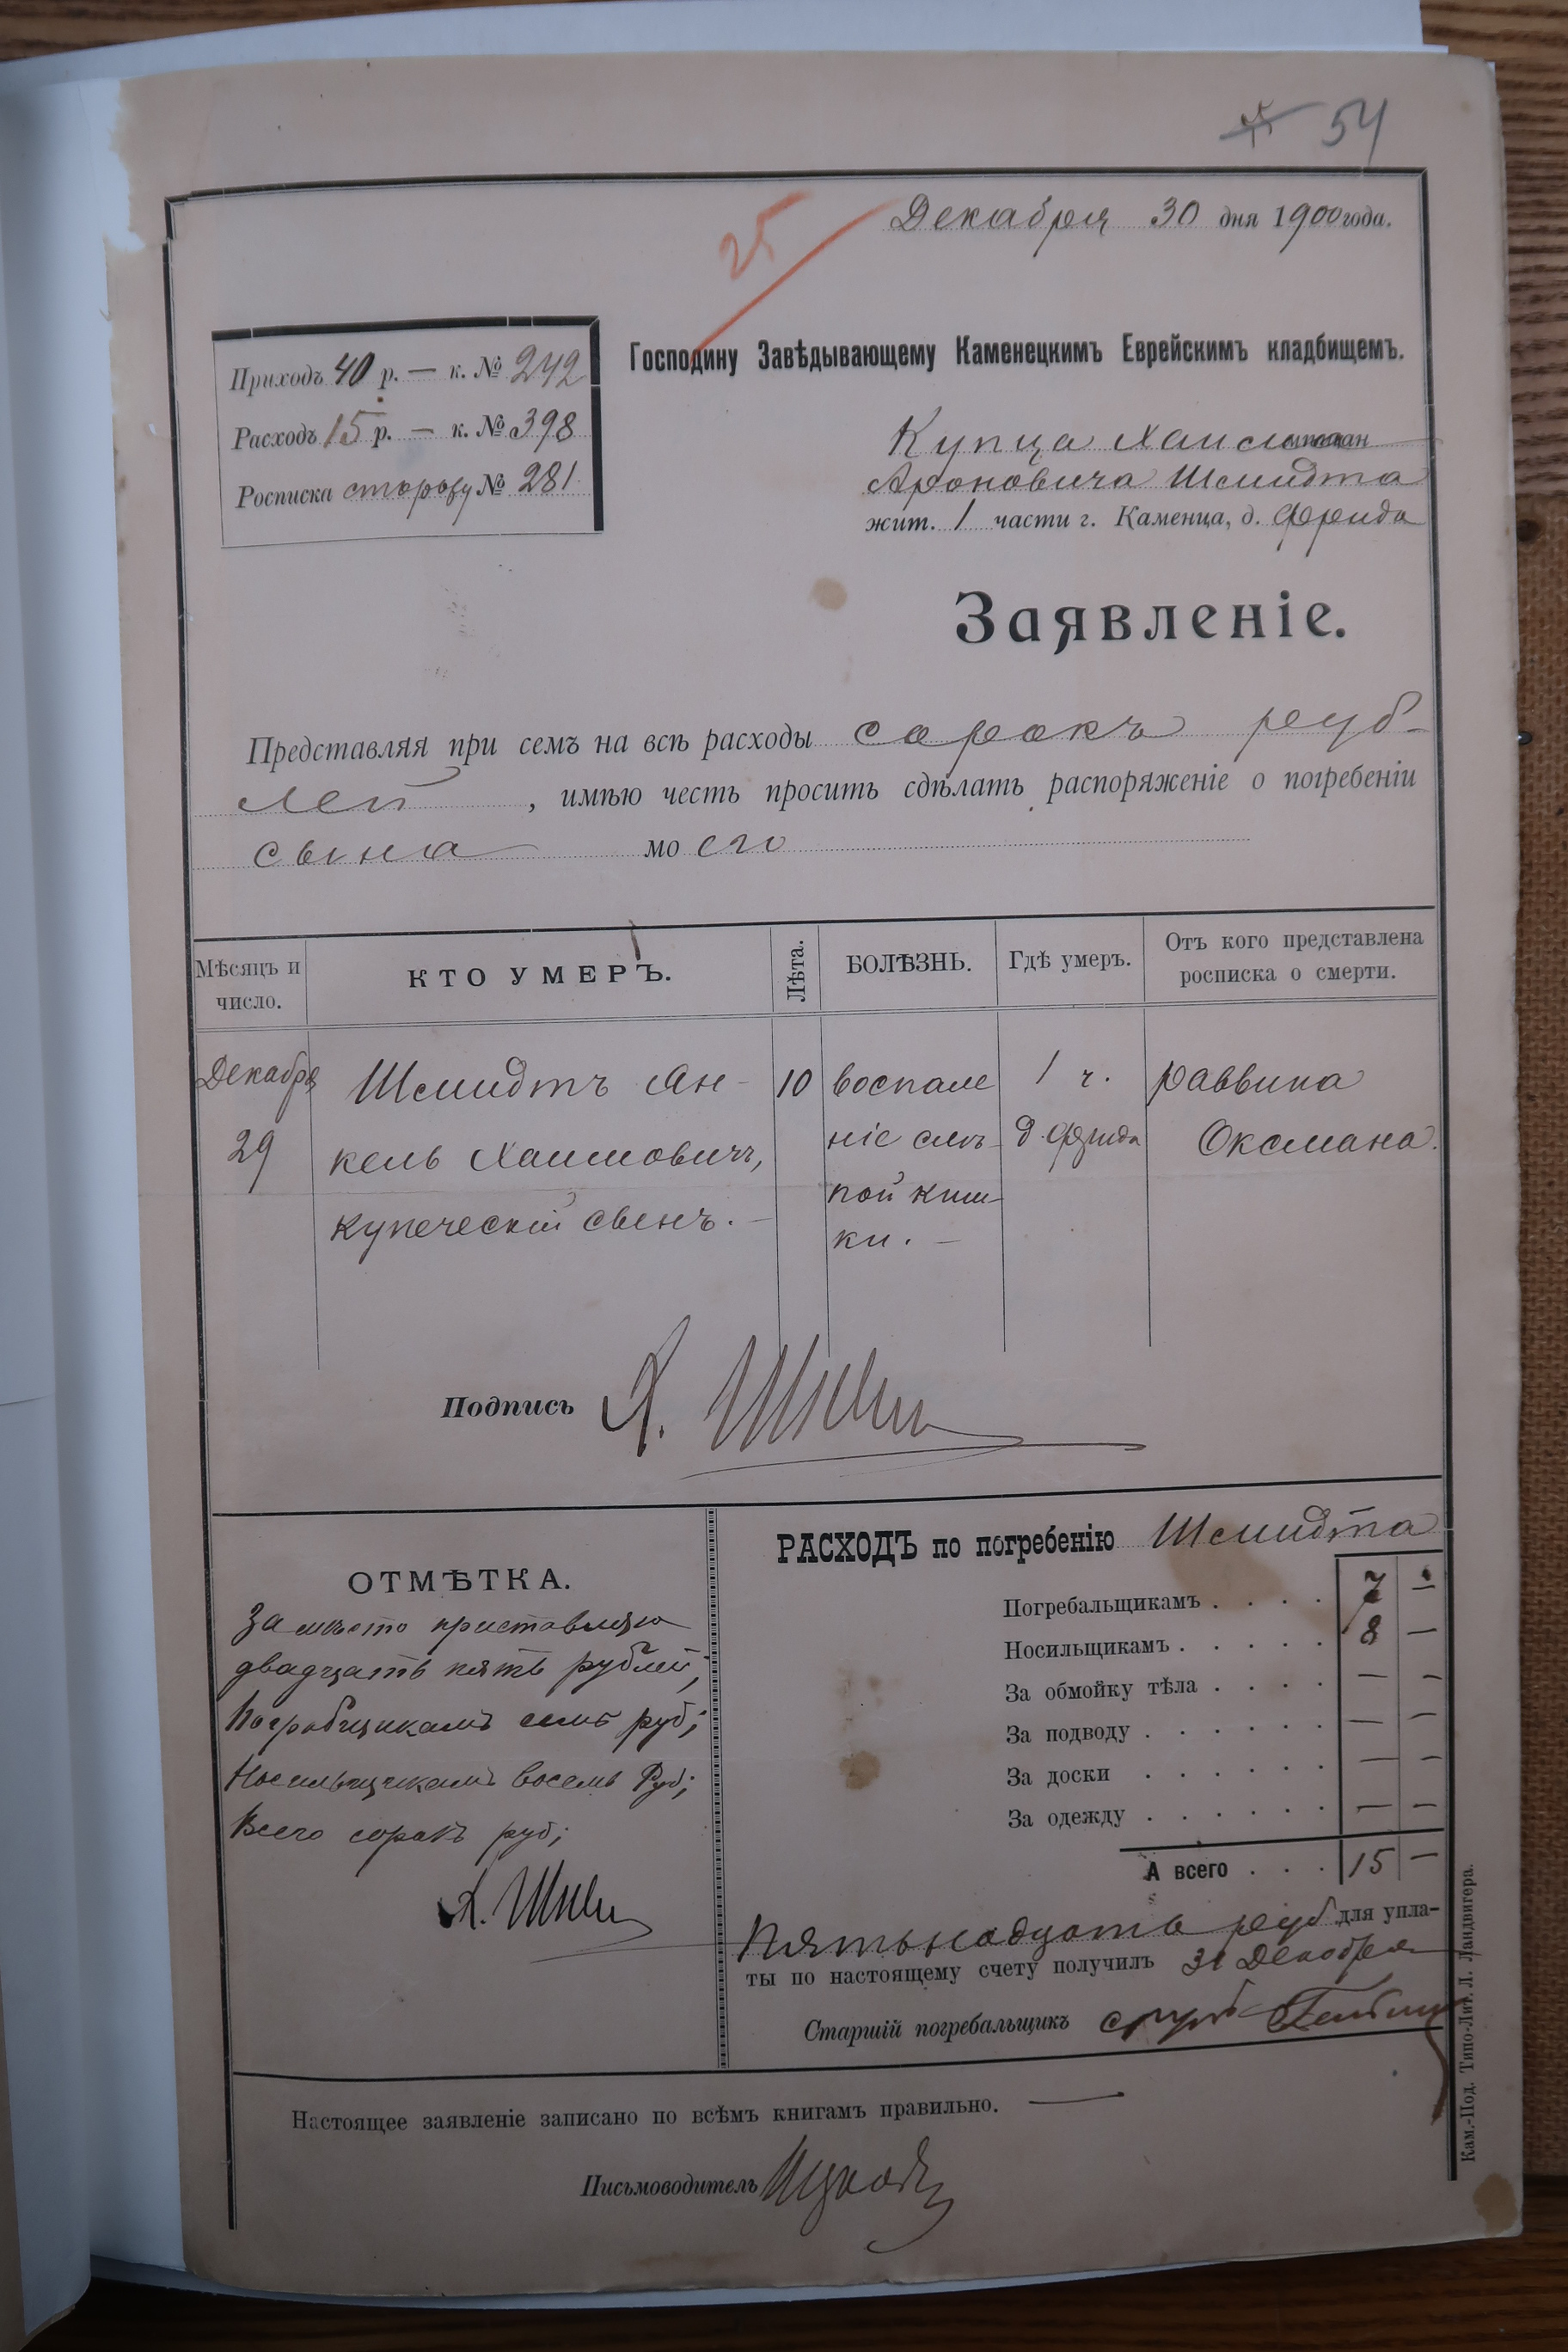 54
Декабря 30 дня 1900 года.
25
Приходъ 40 р. — к. № 242
Расходъ 15 р. — к. № 398
Росписка сторожу № 281
Господину Завѣдывающему Каменецкимъ Еврейскимъ кладбищемъ.
Купца Хаима
Ароновича Шмидта
жит. 1 части г. Каменца, д. Фрида
Заявленіе.
Представляя при семъ на всѣ расходы сорокъ руб-
лей, имѣю честь просить сдѣлать распоряженіе о погребеніи
сына моего
Мѣсяцъ и число.
КТО УМЕРЪ.
Лѣта.
БОЛѢЗНЬ.
Гдѣ умеръ.
Отъ кого представлена росписка о смерти.
Декабря 29
Шмидтъ Ян-
кель Хаимовичъ,
купеческій сынъ. —
10
воспале
ніе слѣ-
пой киш-
ки. —
1 ч.
д. Фрида
раввина
Оксмана.
Подпись Х. Шмид
ОТМѢТКА.
За мѣсто приставляю
двадцать пять рублей,
Погребщикамъ семь руб;
Носильщикамъ восемь Руб;
Всего сорокъ руб;
Х. Шмид
РАСХОДЪ по погребенію Шмидта
Погребальщикамъ . . . . 7 —
Носильщикамъ . . . . . 8 —
За обмойку тѣла . . . . — —
За подводу . . . . . . — —
За доски . . . . . . — —
За одежду . . . . . . — —
А всего . . . 15 —
Пятьнадцать руб для упла-
ты по настоящему счету получилъ 31 Декабря
Старшій погребальщикъ
Настоящее заявленіе записано по всѣмъ книгамъ правильно. —
Письмоводитель
Кам.-Под. Типо-Лит. Л. Ландвигера.